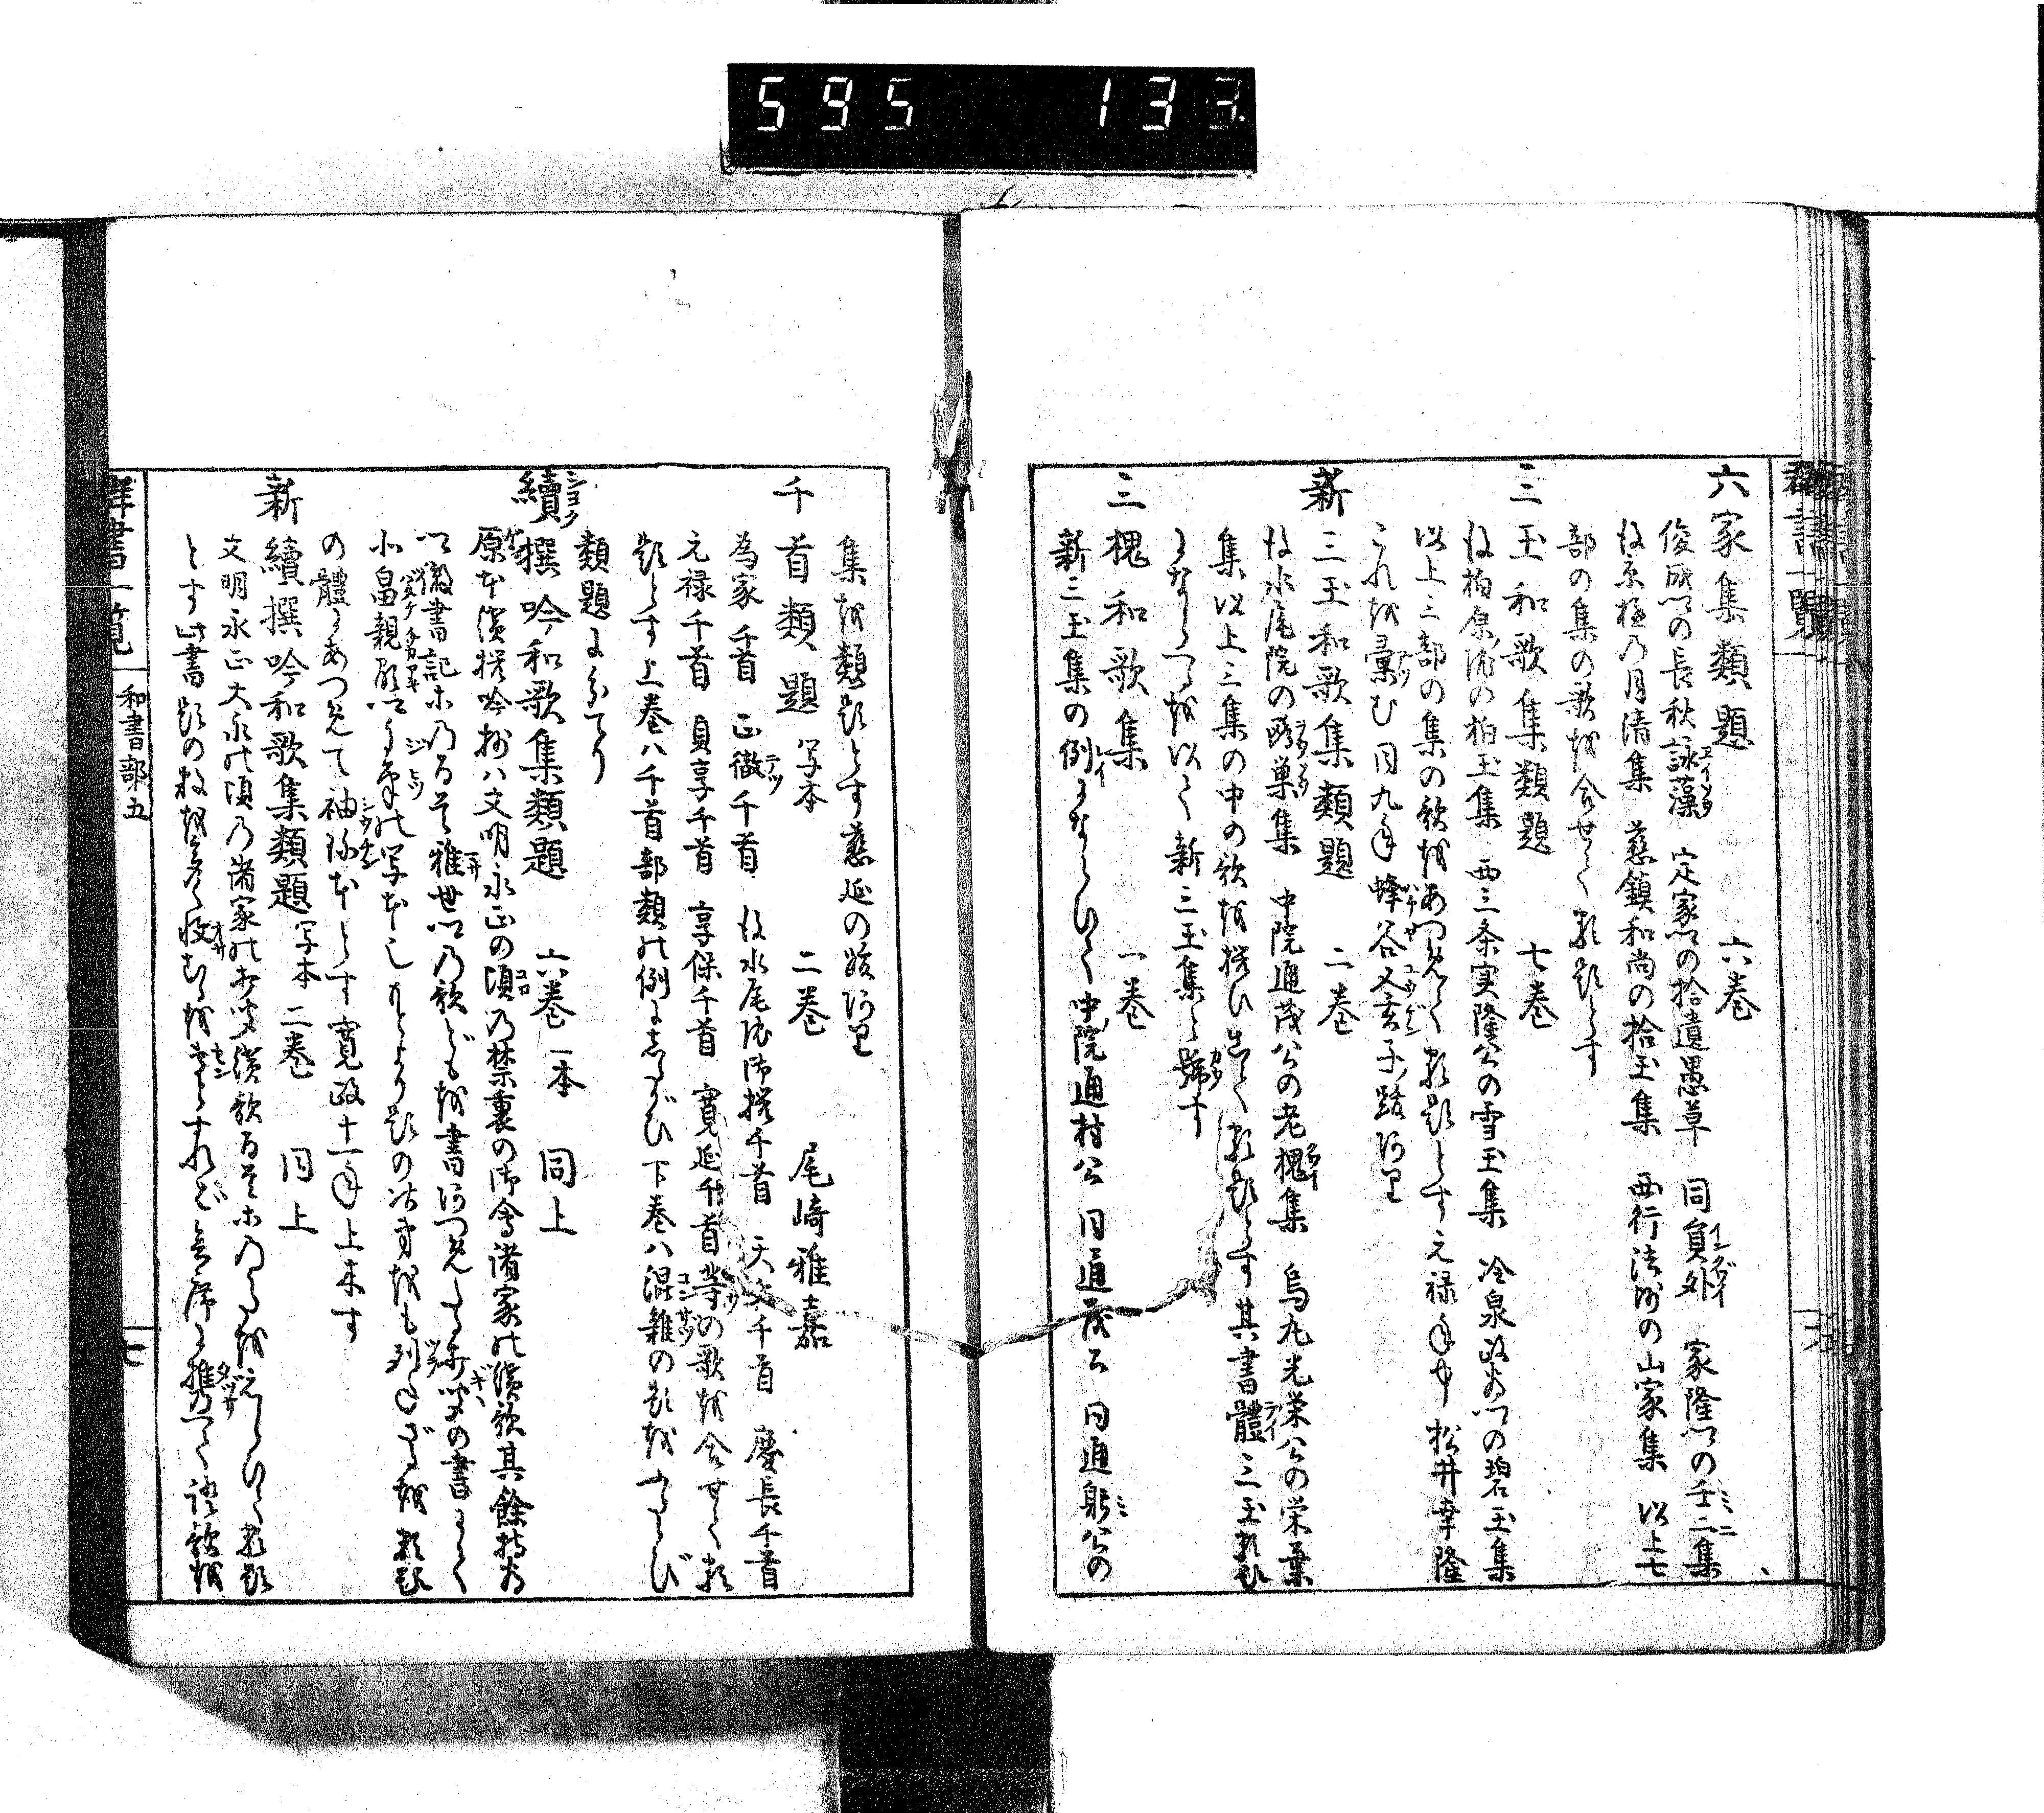 595 133
六家集類題 六巻
俊成卿の長秋詠藻 定家卿の拾遺愚草 同員外 家隆卿の壬二集
後京極の月清集 慈鎮和尚の拾玉集 西行法師の山家集 以上七
部の集の歌を合せて類題とす
三玉和歌集類題 七巻
後柏原院の柏玉集 西三条実隆公の雪玉集 冷泉政為卿の碧玉集
以上三部の集の歌をあつめて類題とす元禄年中 松井幸隆
これを彙む同九年蜂谷又玄子ノ跋あり
新三玉和歌集類題 二巻
後水尾院の鴎巣集 中院通茂公の老槐集 烏丸光栄公の栄葉
集以上三集の中の歌を撰ひ出て類題とす其書體三玉類題
にならへるを以て新三玉集と號す
三槐和歌集 一巻
新三玉集の例にならひて中院通村公 同通茂公 同通躬公の
集を類題とす慈延の跋あり
千首類題 写本 二巻 尾崎雅嘉
為家千首 正徹千首 後水尾院御撰千首 天文千首 慶長千首
元禄千首 貞享千首 享保千首 寛延千首等の歌を合せて類
題とす上巻ハ千首部類の例にしたがひ下巻ハ混雑の題をならび
類題に分てり
續撰吟和歌集類題 六巻 一本 同上
原本續撰吟抄ハ文明永正の頃の禁裏の御會諸家の續歌其餘持為
卿徹書記等乃至雅世卿の歌どもを書あつめたる聞の書にて
小畠親顕卿自筆の写本也もとより題の次第をも列ねざるを類題
の體にあつめて袖珍本とす寛政十一年上木す
新續撰吟和歌集類題 写本 二巻 同上
文明永正大永の頃の諸家の打聞續歌百首等の
とす此書題の数を多く收むるを専とすれど會席に携へて證歌を
群書一覧 和書部五